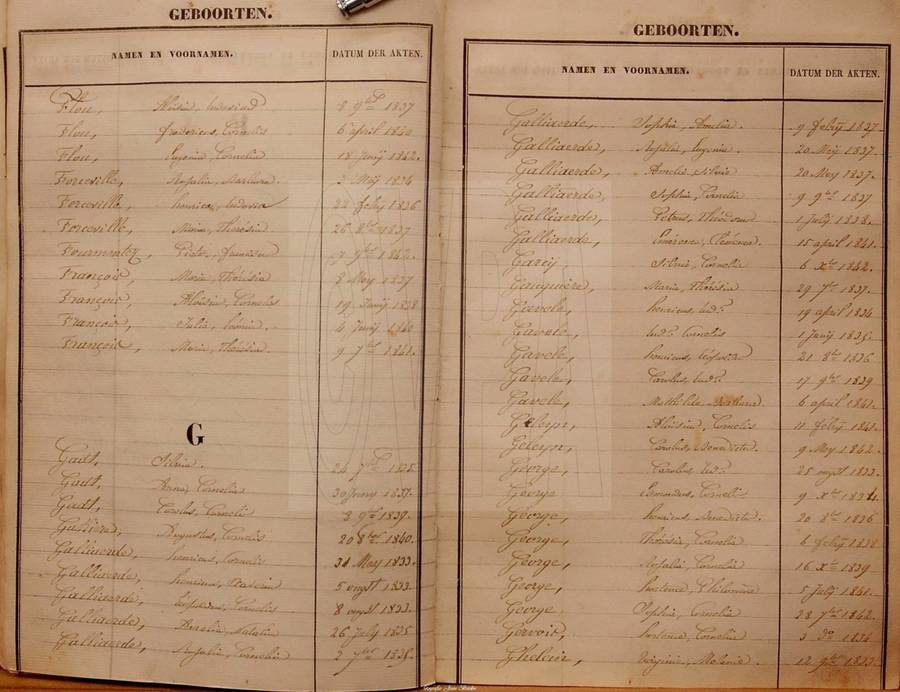 GEBOORTEN.
NAMEN EN VOORNAMEN. DATUM DER AKTEN.
Flou, 8 9bre 1837
Flou, fredericus, Cornelis 6 april 1840
Flou, Eugenia, Cornelia 18 Junij 1842.
Forceville, Rosalia, Barbara. 2 Meij 1834
Forceville, henricus, ludovicus 22 febrij 1836
Forceville, Maria, Thérésia 26 8bre 1837
Fourmentez, Pieter, franciscus 7 9bre 1842.
François, Maria, Thérésia 8 Meij 1837
François, Aloïsius, Cornelis 19 Junij 1838
François, Julia, 4 junij 1840
François, Maria, Thérésia. 9 7bre 1841.
G
Gadt, Silvia. 24 7bre 1835.
Gadt, Anna, Cornelia 30 Juny 1837.
Gadt, Carolus, Cornelis 3 9bre 1839.
Augustus, Cornelis 20 8bre 1840.
Galliaerde, henricus, Cornelis 31 Mey 1833.
Galliaerde, henricus, 5 ougst 1833.
Galliaerde, Cornelis 8 ougst 1833.
Galliaerde, Natalia 26 july 1835
Galliaerde, Rosalia, Cornelia 2 7bre 1835.
GEBOORTEN.
NAMEN EN VOORNAMEN. DATUM DER AKTEN.
Galliaerde, Sophia, Amelia. 9 febrij 1837.
Galliaerde, Rosalia, Eugenia. 20 Meij 1837.
Galliaerde, Amelia, Silvia 20 Mey 1837.
Galliaerde, Sophia, Cornelia 9 9bre 1837
Galliaerde, Petrus, Théodorus 1 July 1838.
Galliaerde, 15 april 1841.
Gareij, Silvia, Cornelia 6 Xbre 1842.
Gacquiere, Maria, Thérésia 29 7bre 1837.
Gavele, henricus, lud? 19 april 1834
Gavele, lud? Cornelis 1 Junij 1835.
Gavele, henricus, 21 8bre 1836
Gavele, Carolus, lud? 17 9bre 1839
Gavele, Mathilde, Barbara. 6 april 1841.
Geleyn, Aloïsius, Cornelis 11 febrij 1841.
Geleyn, Carolus, Benedictus. 9 Mey 1842.
George, Carolus, lud? 25 ougst 1833.
George Edmundus, Cornelis 9 Xbre 1834.
George, henricus, Benedictus. 20 8bre 1836
George, Thérésia, Cornelia 6 febrij 1838
George, Rosalia, Cornelia 16 Xbre 1839
George, hortence, Philomena 5 July 1841.
George Sophia, Cornelia 28 7bre 1842.
Gervois, hortence, Cornelia 3 do 1836
Ghelein, Virginia, Melanie. 12 9bre 1843.